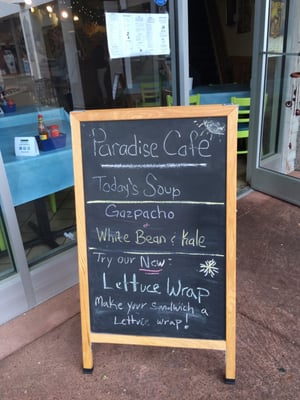 Paradise Café
Today's Soup
Gazpacho
or
White Bean & Kale
Try our New:
Lettuce Wrap
Make your sandwich a
Lettuce wrap!